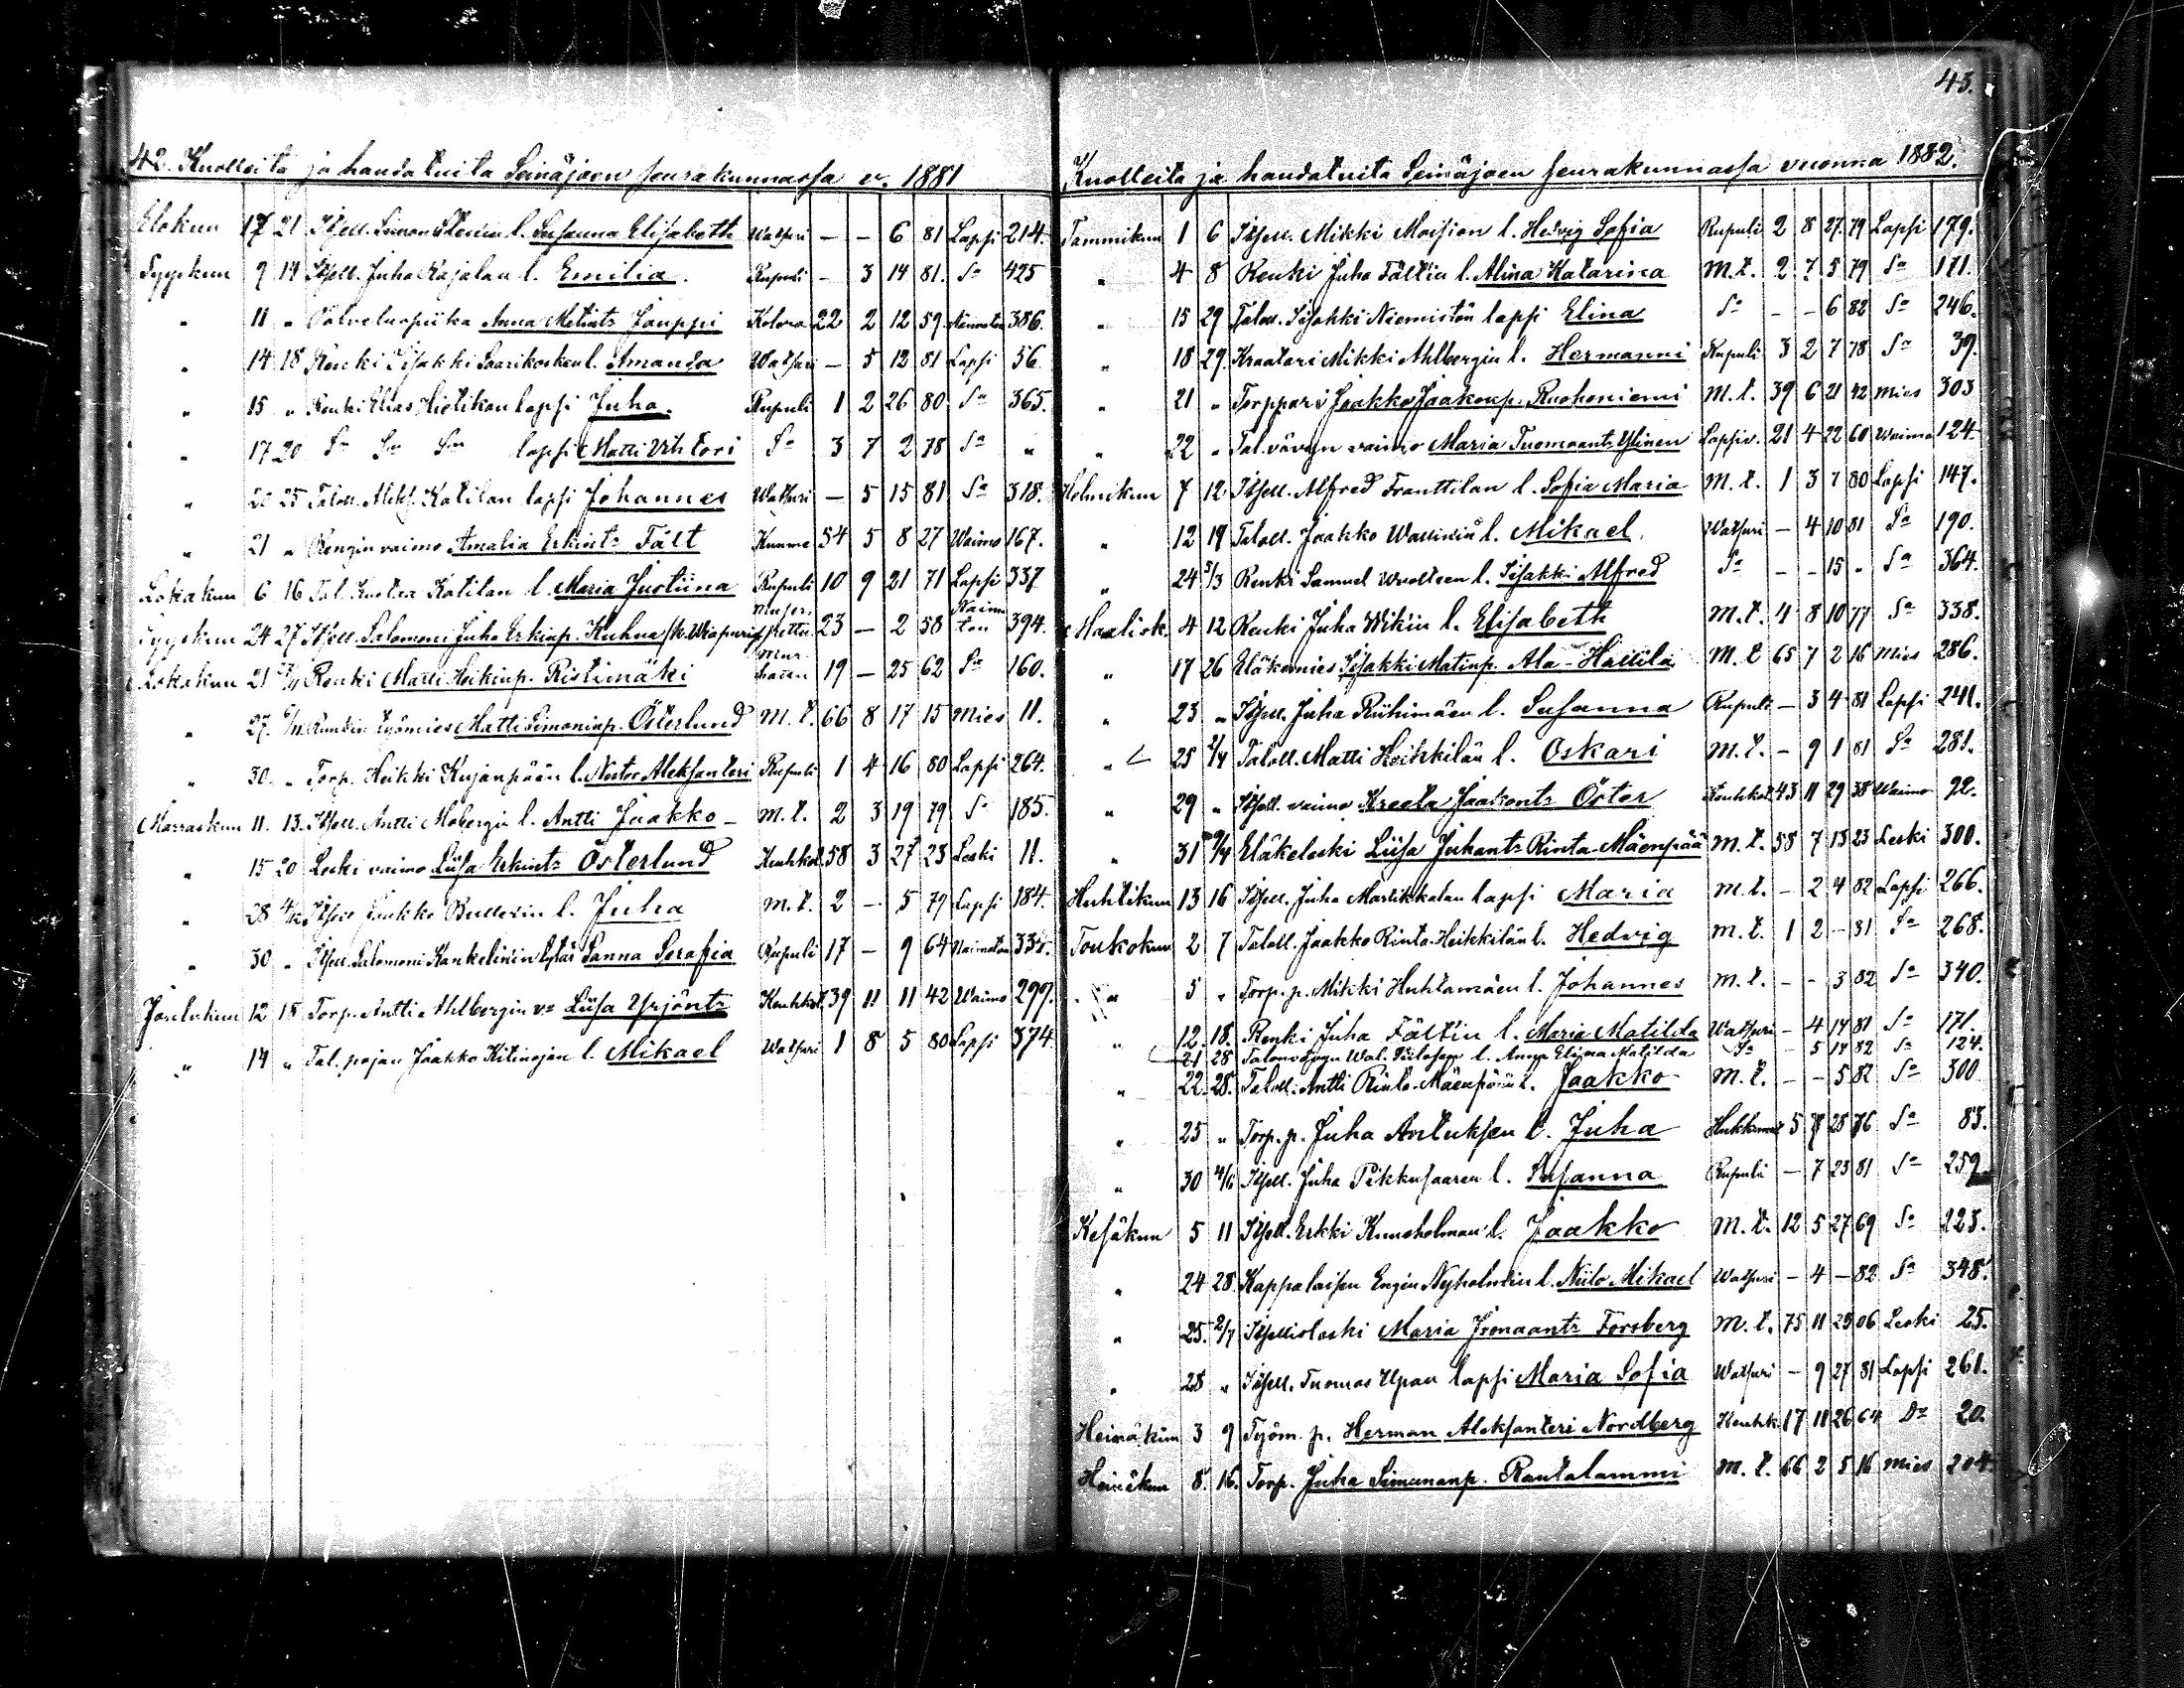 42. Kuolleita ja haudatuita Seinäjoen seurakunnassa v. 1881
Elokun 17 21 Itsell. l. Susanna Elisabeth Watsuri – – 6 81 Lapsi 214.
Syyskun 9 14 Itsell. Juha Rajalan l. Emilia. Rupuli – 3 14 81. Sa 425
" 11 " Palveluspiika Anna Matints Jauppi 22 2 12 59 386.
" 14 18 Renki Iisakki Saarikosken l. Amanda Watsuri – 5 12 81 Lapsi 56
" 15 " Renki Elias Hietikon lapsi Juha. Rupuli 1 2 26 80 Sa 365.
" 17 20 Sn Sn Sn lapsi Matti Vihtori Sa 3 7 2 78 Sa "
" 25 Taloll. Katilan lapsi Johannes Watsuri – 5 15 81 Sa 318.
" 21 " Rengin vaimo Amalia Erkints Fält Kuume 54 5 8 27 Waimo 167.
Lokakun 6 16 Tal. Kustaa Katilan l. Maria Justiina Rupuli 10 9 21 71 Lapsi 337
Syyskun 24 27 Itsell. Salomoni Juha Erkinp. Kuhna 23 – 2 58 Naimaton 394.
Lokakun 21 Renki Matti Heikinp. Ristimäki 19 – 25 62 Sa 160.
" 27. 6/11 Ruudin työmies Matti Simoninp. Österlund M. t. 66 8 17 15 Mies 11.
" 30. " Torp. Heikki Kujanpään l. Nestor Aleksanteri Rupuli 1 4 16 80 Lapsi 264.
Marraskun 11. 13. Itsell. Antti Mobergin l. Antti Jaakko – M. t. 2 3 19 79 Sa 185.
" 15 20 Leski vaimo Liisa Erkints Österlund Keuhkot. 58 3 27 23 Leski 11.
" 28 4/12 Itsell. Jaakko l. Juha M. t. 2 – 5 79 Lapsi 184.
" 30 " Itsell. Salomoni Kankelinin tytär Sanna Serafia Rupuli 17 – 9 64 Naimaton
Joulukun 12 18 Torp. Antti Ahlbergin va Liisa Yrjönts Keuhkot. 39 11 11 42 Waimo 299.
" 14 " Tal. pojan Jaakko Kitinojan l. Mikael Watsuri 1 8 5 80 Lapsi 374.
43.
Kuolleita ja haudatuita Seinäjoen seurakunnassa vuonna 1882.
Tammikun 1 6 Itsell. Mikki Moision l. Hedvig Sofia Rupuli 2 8 27. 79 Lapsi 179.
" 4 8 Renki Juha Fältin l. Alina Katarina M. t. 2 7 5 79 Sa 171.
" 15 29 Taloll. Iisakki Niemistön lapsi Elina Sa – – 6 82 Sa 246.
" 18 29. Kraatari Mikki Ahlbergin l. Hermanni Rupuli 3 2 7 78 Sa 39.
" 21 " Torppari Jaakko Jaakonp. Ruohoniemi M. t. 39 6 21 42 Mies 303
" 22 " Tal. vävyn vaimo Maria Tuomaants Ylinen Lapsiv. 21 4 22 60 Waimo 124.
Helmikun 7 12 Itsell. Alfred Franttilan l. Sofia Maria M. t. 1 3 7 80 Lapsi 147.
" 12 19 Taloll. Jaakko Wallinin l. Mikael. Watsuri – 4 10 81 Sa 190.
" 24 5/3 Renki Samuel l. Iisakki Alfred Sa – – 15 " Sa 364.
Maalisk. 4 12 Renki Juha Wikin l. Elisabeth M. t. 4 8 10 77 Sa 338.
" 17 26 Eläkemies Iisakki Matinp. Ala-Hallila M. t 65 7 2 16 Mies 286.
" 23 " Itsell. Juha Riihimäen l. Susanna Rupuli – 3 4 81 Lapsi 241.
" 25 2/4 Taloll. Matti Heikkilän l. Oskari M. t. – 9 1 81 Sa 281.
" 29 " Itsell. vaimo Kreeta Jaakonts Öster Keuhkot. 43 11 29 38 Waimo 92.
" 31 9/4 Eläkeleski Liisa Juhants Rinta-Mäenpää M. t. 58 7 13 23 Leski 300.
Huhtikun 13 16 Itsell. Juha Marttikkalan lapsi Maria M. t. – 2 4 82 Lapsi 266.
Toukokun 2 7 Taloll. Jaakko Rinta-Heikkilän l. Hedvig M. t. 1 2 – 81 Sa 268.
" 5 " Torp. p. Mikki Huhtamäen l. Johannes M. t. – – 3 82 Sa 340.
" 12 18. Renki Juha Fältin l. Maria Matilda Watsuri – 4 14 81 Sa 171.
21 28 Talonvävyn l. Anna Elina Matilda Sa – 5 14 82 Sa 124.
" 22. 28. Taloll. Antti Rinta-Mäenpään l. Jaakko M. t. – – 5 82 Sa 300
" 25 " Torp. p. Juha l. Juha 5 7 28 76 Sa 83.
" 30 4/6 Itsell. Juha Pikkusaaren l. Susanna Rupuli – 7 23 81 Sa 259
Kesäkun 5 11 Itsell. Erkki l. Jaakko M. t. 12 5 27 69 Sa 223.
" 24 28. Kappalaisen Nyholmin l. Niilo Mikael Watsuri – 4 – 82 Sa 348.
" 25. 2/7 Itsellisleski Maria Joonaants Forsberg M. t. 75 11 29 06 Leski 25.
" 28 " Itsell. Tuomas Upan lapsi Maria Sofia Watsuri – 9 27 81 Lapsi 261.
Heinäkun 3 9 Työm. p. Herman Aleksanteri Nordberg Keuhk. 17 11 26 64 Do 20.
Heinäkun 8. 16. Torp. Juha Simunanp. Rautalammi M. t. 66 2 5 16 Mies 204.